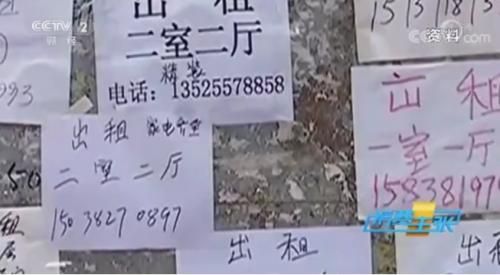 CCTV 2
财经
央视网
资料
出租
二室二厅
精装
电话：13525578858
993
出租 家电齐全
二室二厅
15038270897
出租
一室一厅
1583819
租
出租
出租